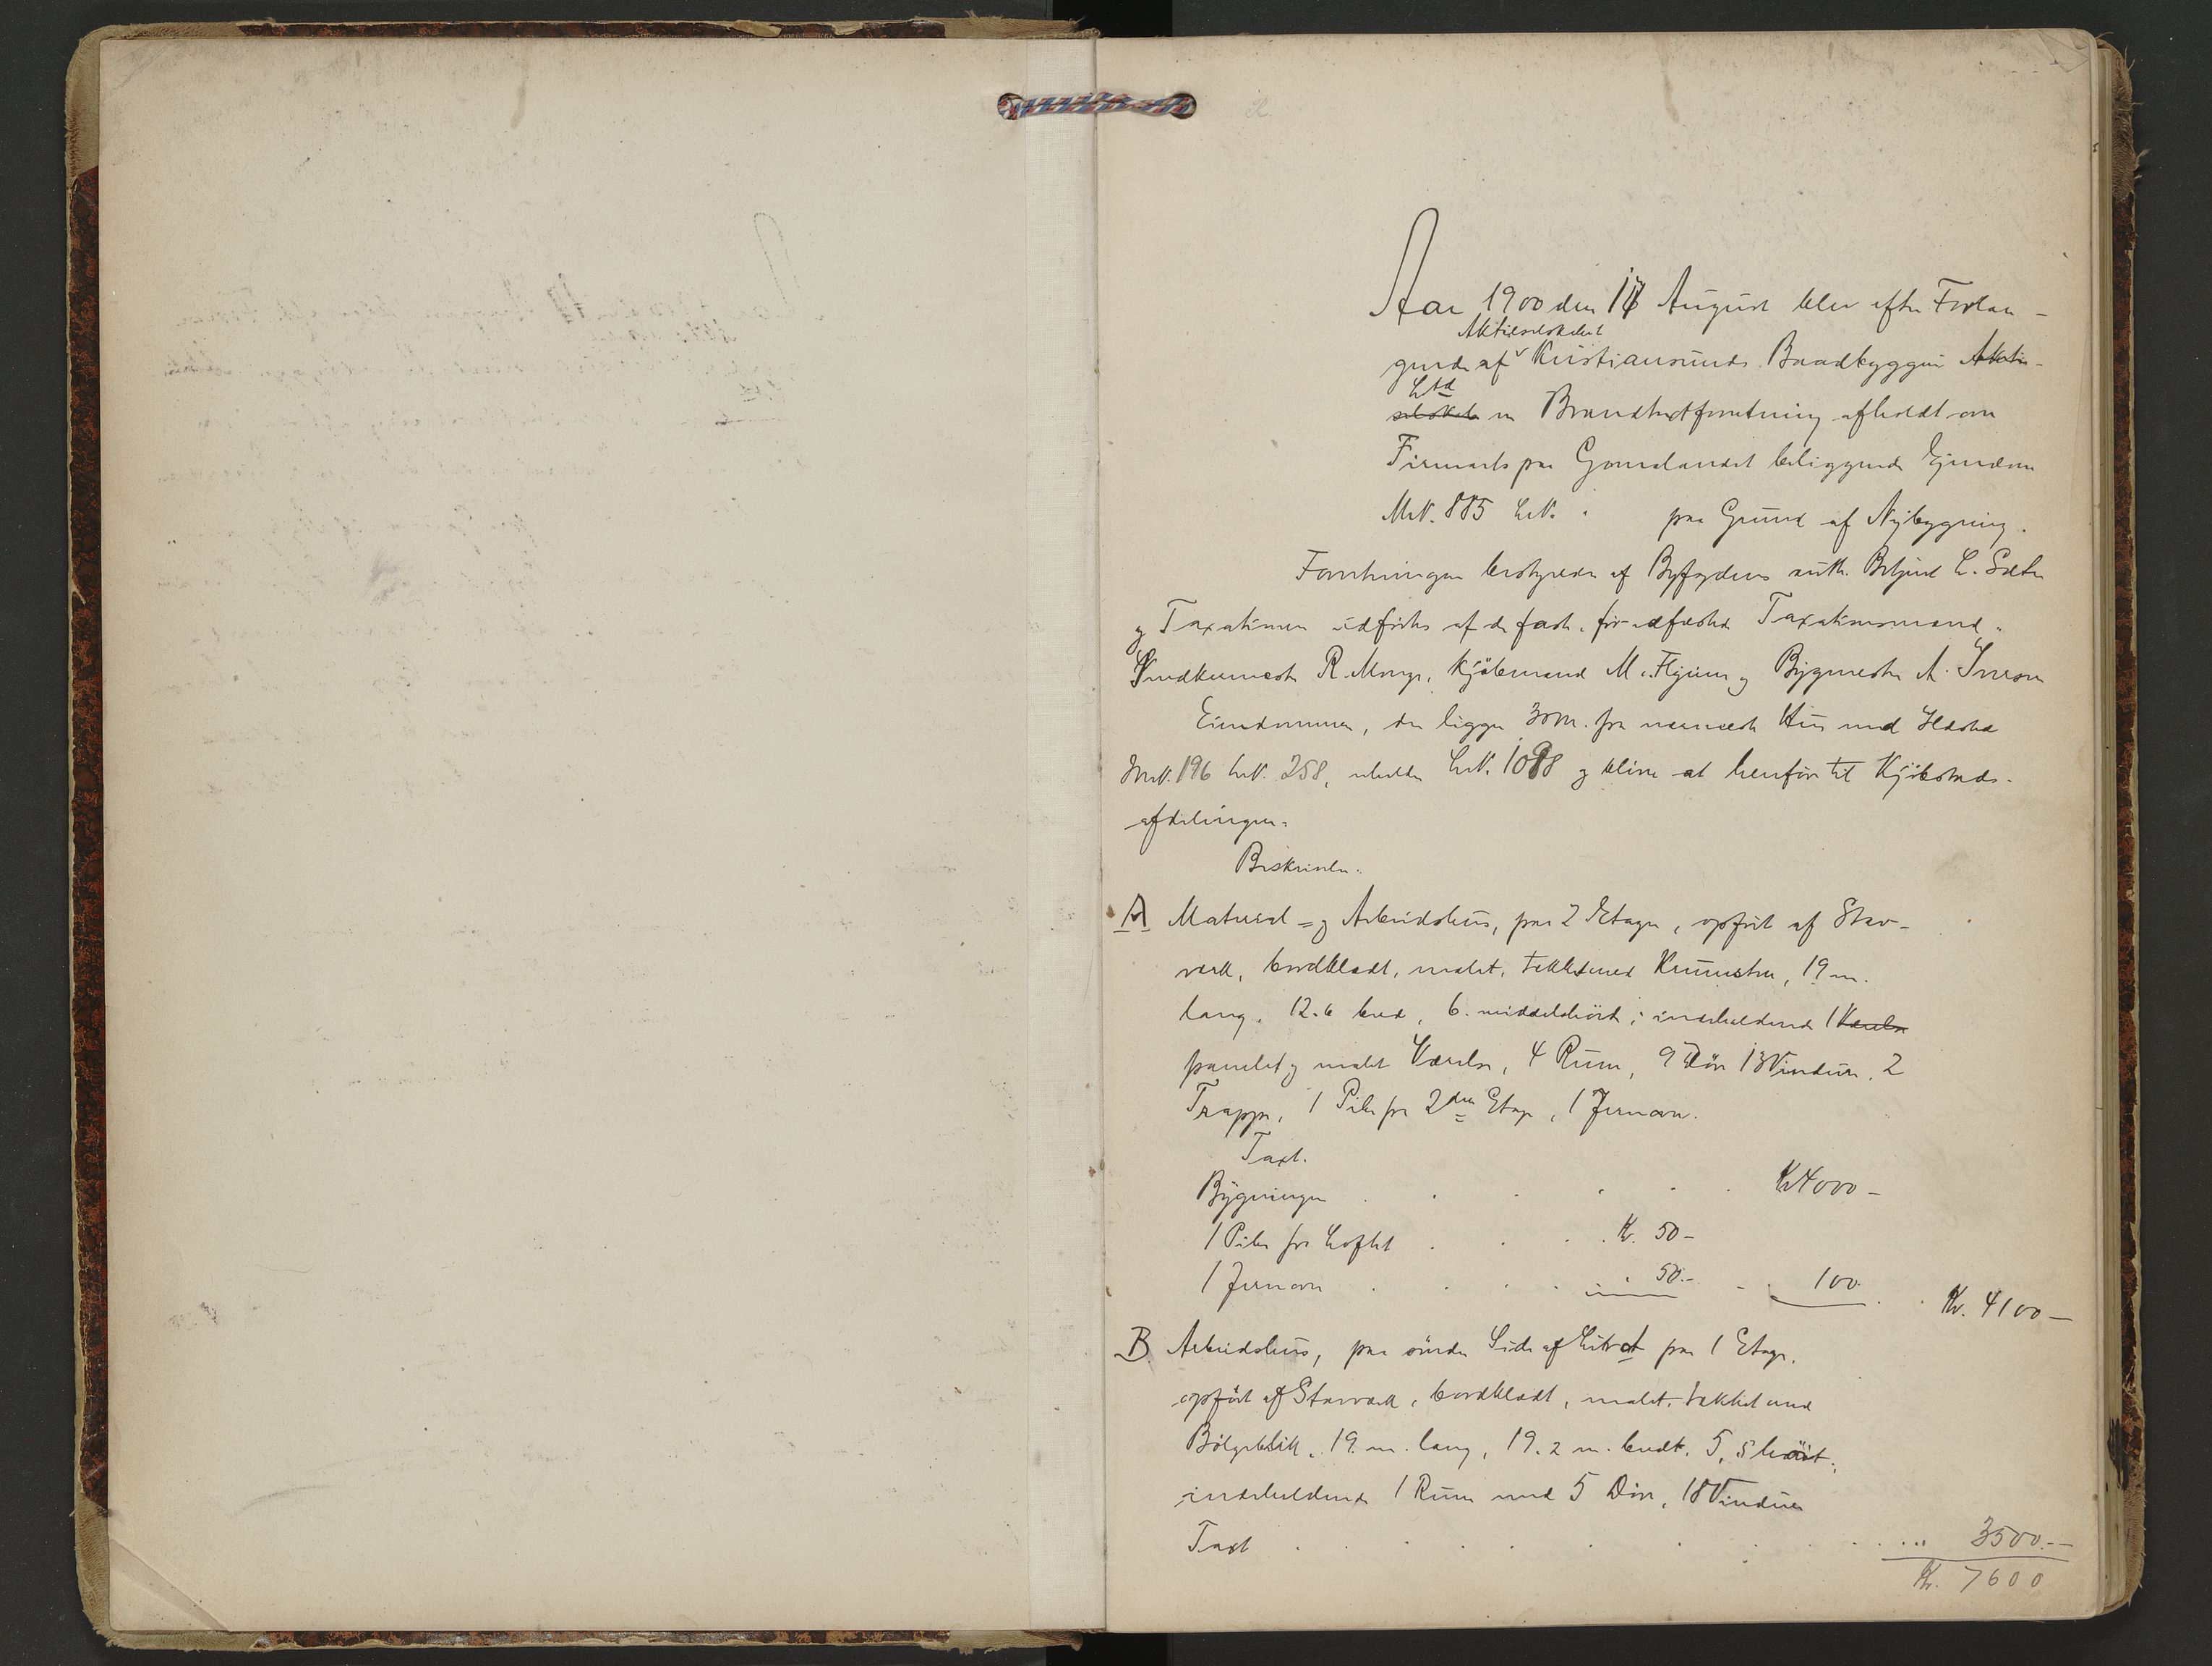 Aar 1900 den 17 August blev efter Forlan-
Aktieselskabet
gende af Kristiansunds Baadbyggeri Aktie-
Ltd
selskab en Brandtaxtforretning afholdt over
Firmaets paa Gomalandet beliggende Ejendom
MN. 885 LN. paa Grund af Nybygning.
Forretningen bestyredes af Byfogdens auth. Betjent L. Sæter
og Taxationen udførtes af de faste, før edfæstede Taxationsmænd,
R. Kjøbmand M. og Bygmester A. Iversen
Eiendommen, der ligger 30 m. fra nærmeste Hus med Ildsted
MN. 196 LN. 258, erholder LN. 1098 og bliver at henføre til Kjøbstads-
afdelingen.
Beskrivelse.
A Material- og Arbeidshus, paa 2 Etager, opført af Stav-
værk, bordklædt, malet, tækket med Krumsten, 19 m.
lang, 12.6 bred, 6. middelhøit; indeholdende 1 Værelse
panelet og malet Værelse, 4 Rum, 9 Døre 13 Vinduer, 2
Trapper, 1 Pibe fra 2den Etage, 1 Jernovn.
Taxt.
Bygningen Kr 4000-
1 Pibe fra Loftet Kr. 50-
1 Jernovn 50.- 100 Kr. 4100-
B. Arbeidshus, paa søndre Side af paa 1 Etage,
opført af Stavværk, bordklædt, malet, tækket med
Bølgeblik, 19. m. lang, 19.2 m. bredt, 5,5 høit,
indeholdende 1 Rum med 5 Døre, 18 Vinduer
Taxt 3500.-
Kr. 7600